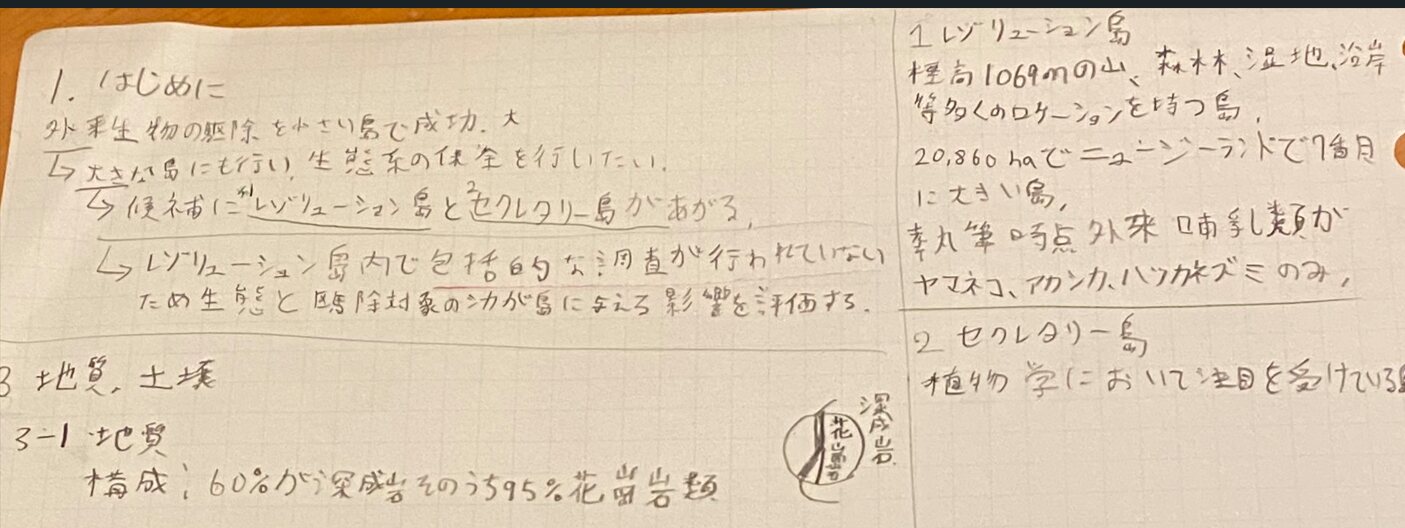 1. はじめに
外来生物の駆除を小さい島で成功. 大
↳ 大きな島にも行い, 生態系の保全を行いたい.
↳ 候補に*1レゾリューション島と*2セクレタリー島があがる,
↳ レゾリューション島内で包括的な調査が行われていない
ため生態と駆除対象のシカが島に与える影響を評価する.
3 地質, 土壌
3-1 地質
構成; 60%が深成岩そのうち95%花崗岩類
深成岩.
花崗岩
1 レゾリューション島
標高1069mの山、森林、湿地、沿岸
等多くのロケーションを持つ島,
20,860haでニュージーランドで7番目
に大きい島,
執筆時点外来哺乳類が
ヤマネコ、アカシカ、ハツカネズミのみ,
2 セクレタリー島
植物学において注目を受けている